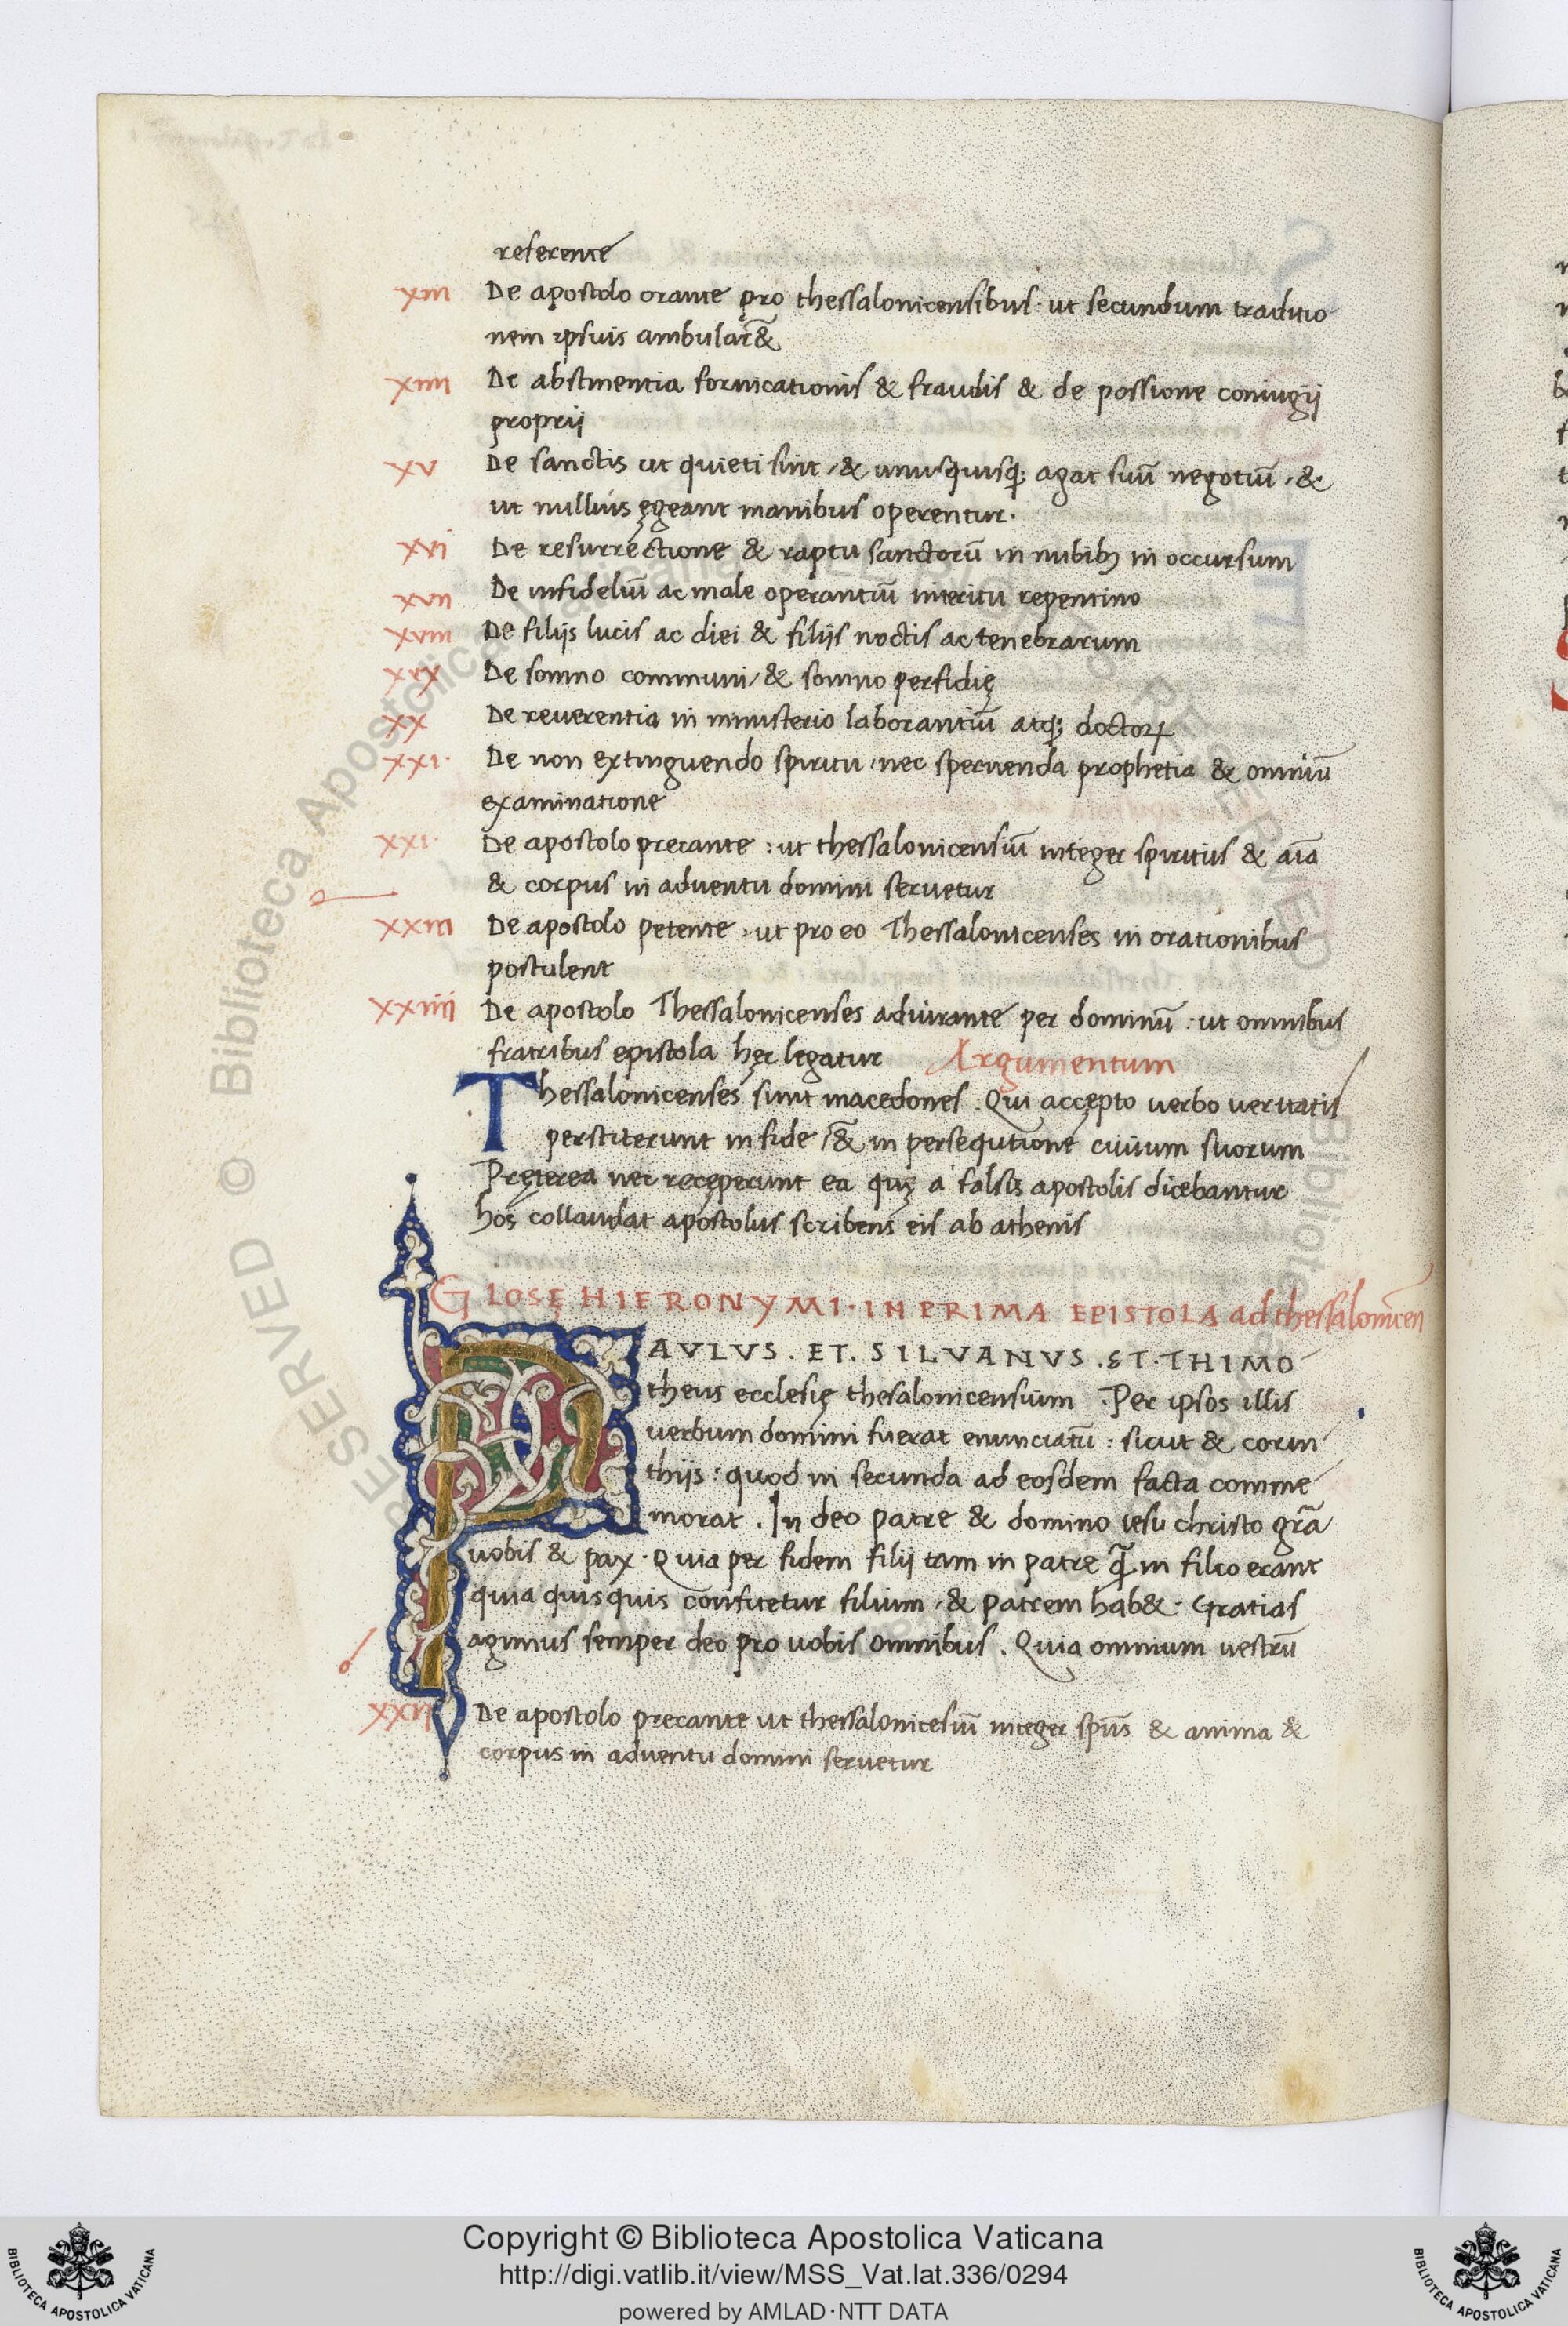 referente
xiii De apostolo orante pro thessalonicensibus · ut secundum traditio
nem ipsius ambular&̄
xiiii De abstinentia fornicationis & fraudis & de possione coniugij
proprij
xv De sanctis ut quieti sint / & unusquisq; agat suū negotiū / &
ut nullius ęgeant manibus operentur.
xvi De resurrectione & raptu sanctorū in nubibȝ in occursum
xvii De infideliū ac male operantiū interitu repentino
xviii De filijs lucis ac diei & filijs noctis ac tenebrarum
xix De somno communi / & somno perfidię
xx De reuerentia in ministerio laborantiū atq; doctoꝝ
xxi · De non extinguendo spiritu · nec spernenda prophetia & omniū
examinatione
xxi · De apostolo precante : ut thessalonicensiū integer spiritus & aīa
& corpus in aduentu domini seruetur
xxiii De apostolo petente , ut pro eo Thessalonicenses in orationibus
postulent
xxiiii De apostolo Thessalonicenses adiurante per dominū : ut omnibus
fratribus epistola hęc legatur Argumentum
Thessalonicenses sunt macedones . Qui accępto uerbo ueritatis
perstiterunt in fide / &̄ in persequtione ciuium suorum
Pręterea nec recęperunt ea quę a falsis apostolis dicebantur
hos collaudat apostolus scribens eis ab athenis
GLOSĘ HIERONYMI · IN PRIMA EPISTOLA ad thessalonicēn
PAULUS . ET . SILVANUS . ET · THIMO
theus ecclesię thesalonicensium . Per ipsos illis
uerbum domini fuerat enunciatū : sicut & corin
thijs : quod in secunda ad eosdem facta comme
morat . In deo patre & domino iesu christo gr̄a
uobis & pax · Quia per fidem filij tam in patre q̄ in filio erant
quia quisquis confitetur filium / & patrem hab& · Gratias
agimus semper deo pro uobis omnibus . Quia omnium uestrū
xxii De apostolo precante ut thessalonicesiū integer spūs & anima &
corpus in aduentu domini seruetur
Copyright © Biblioteca Apostolica Vaticana
http://digi.vatlib.it/view/MSS_Vat.lat.336/0294
powered by AMLAD·NTT DATA